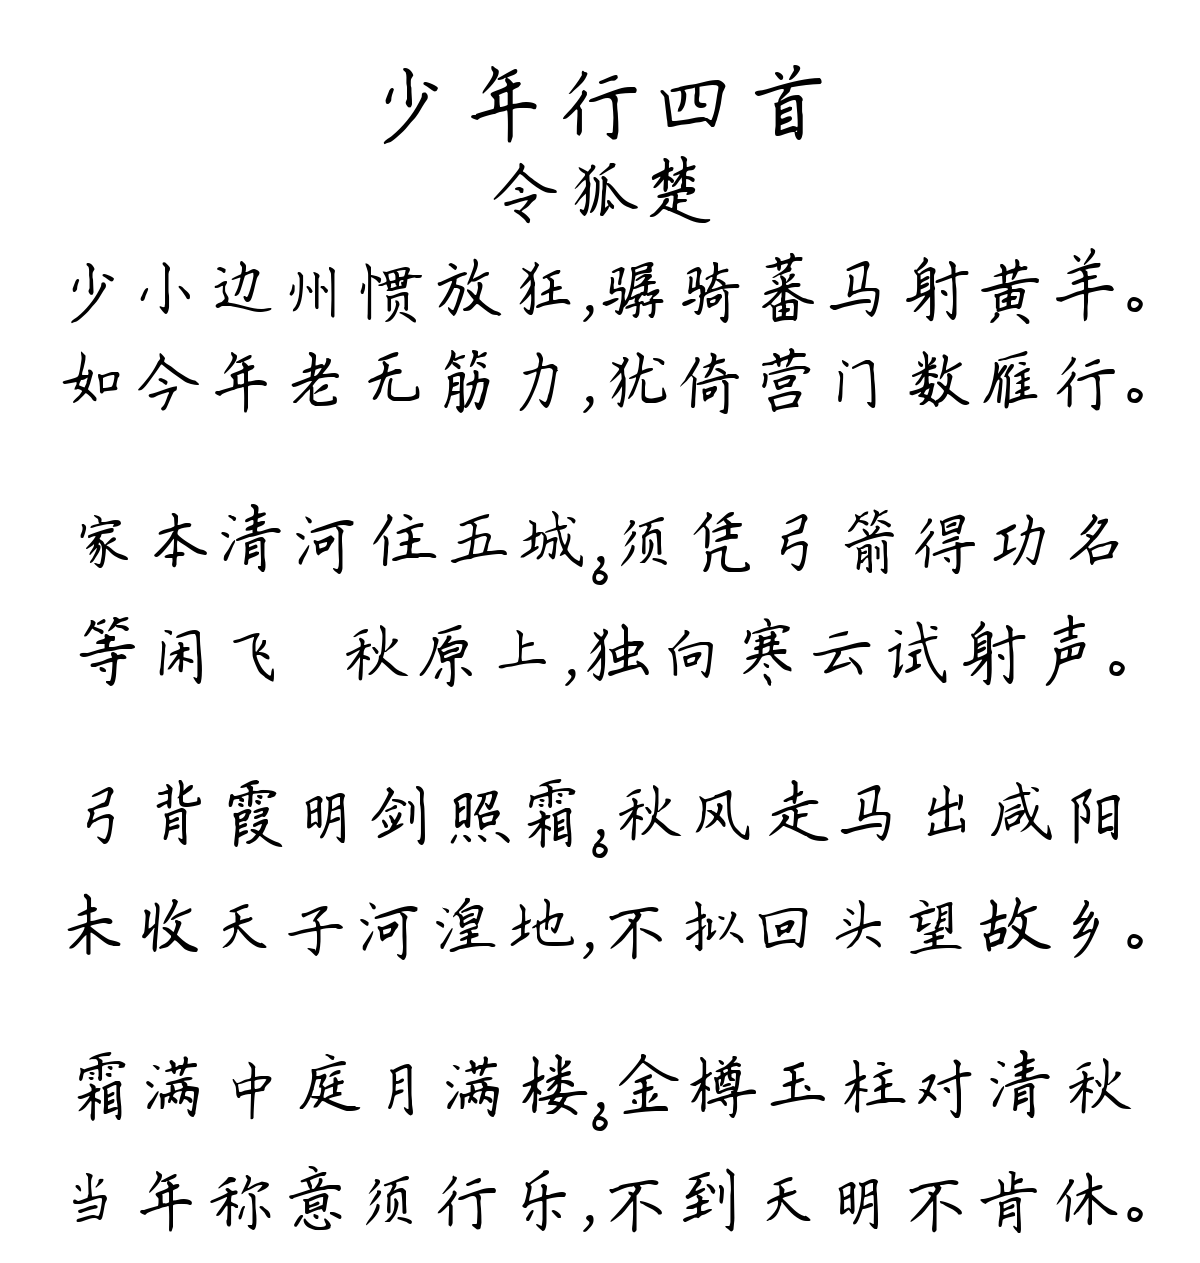 少年行四首
令狐楚
少小边州惯放狂,骣骑蕃马射黄羊。
如今年老无筋力,犹倚营门数雁行。
家本清河住五城,须凭弓箭得功名。
等闲飞 秋原上,独向寒云试射声。
弓背霞明剑照霜,秋风走马出咸阳。
未收天子河湟地,不拟回头望故乡。
霜满中庭月满楼,金樽玉柱对清秋。
当年称意须行乐,不到天明不肯休。